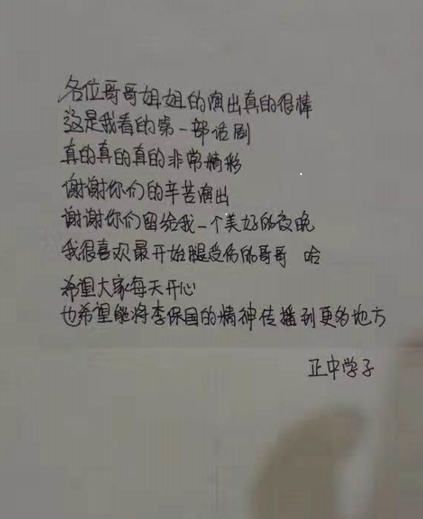 各位哥哥姐姐的演出真的很棒
这是我看的第一部话剧
真的真的真的非常精彩
谢谢你们的辛苦演出
谢谢你们留给我一个美好的夜晚
我很喜欢最开始腿受伤的哥哥 哈
希望大家每天开心
也希望能将李保国的精神传播到更多地方
正中学子